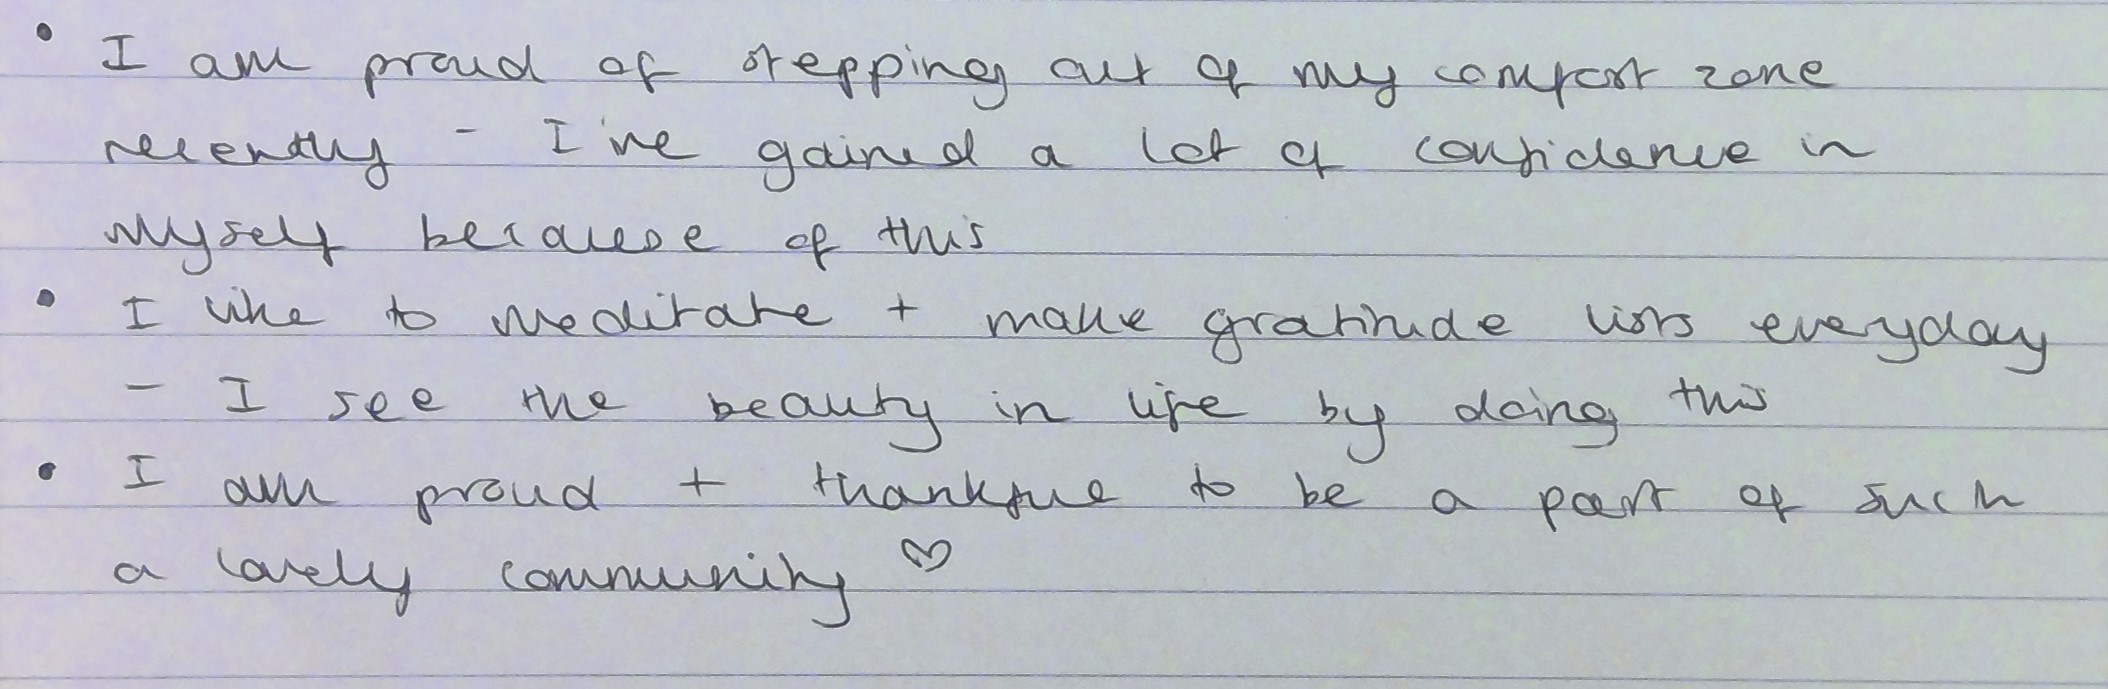 • I am proud of stepping out of my comfort zone
recently - I've gained a lot of confidence in
myself because of this
• I like to meditate + make gratitude lists everyday
- I see the beauty in life by doing this
• I am proud + thankful to be a part of such
a lovely community ♡